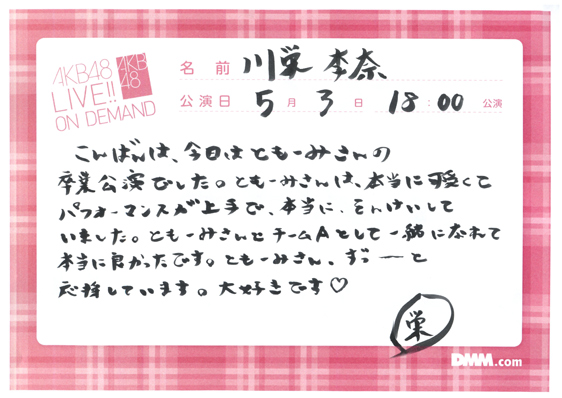 AKB48
LIVE!!
ON DEMAND
AKB
48
名前 川栄 李奈
公演日 5月3日 18:00公演
こんばんは、今日はともーみさんの
卒業公演でした。ともーみさんは、本当に可愛くて
パフォーマンスが上手で、本当に、そんけいして
いました。ともーみさんとチームAとして一緒になれて
本当に良かったです。ともーみさん、ずっーと
応援しています。大好きです♡
栄
DMM.com